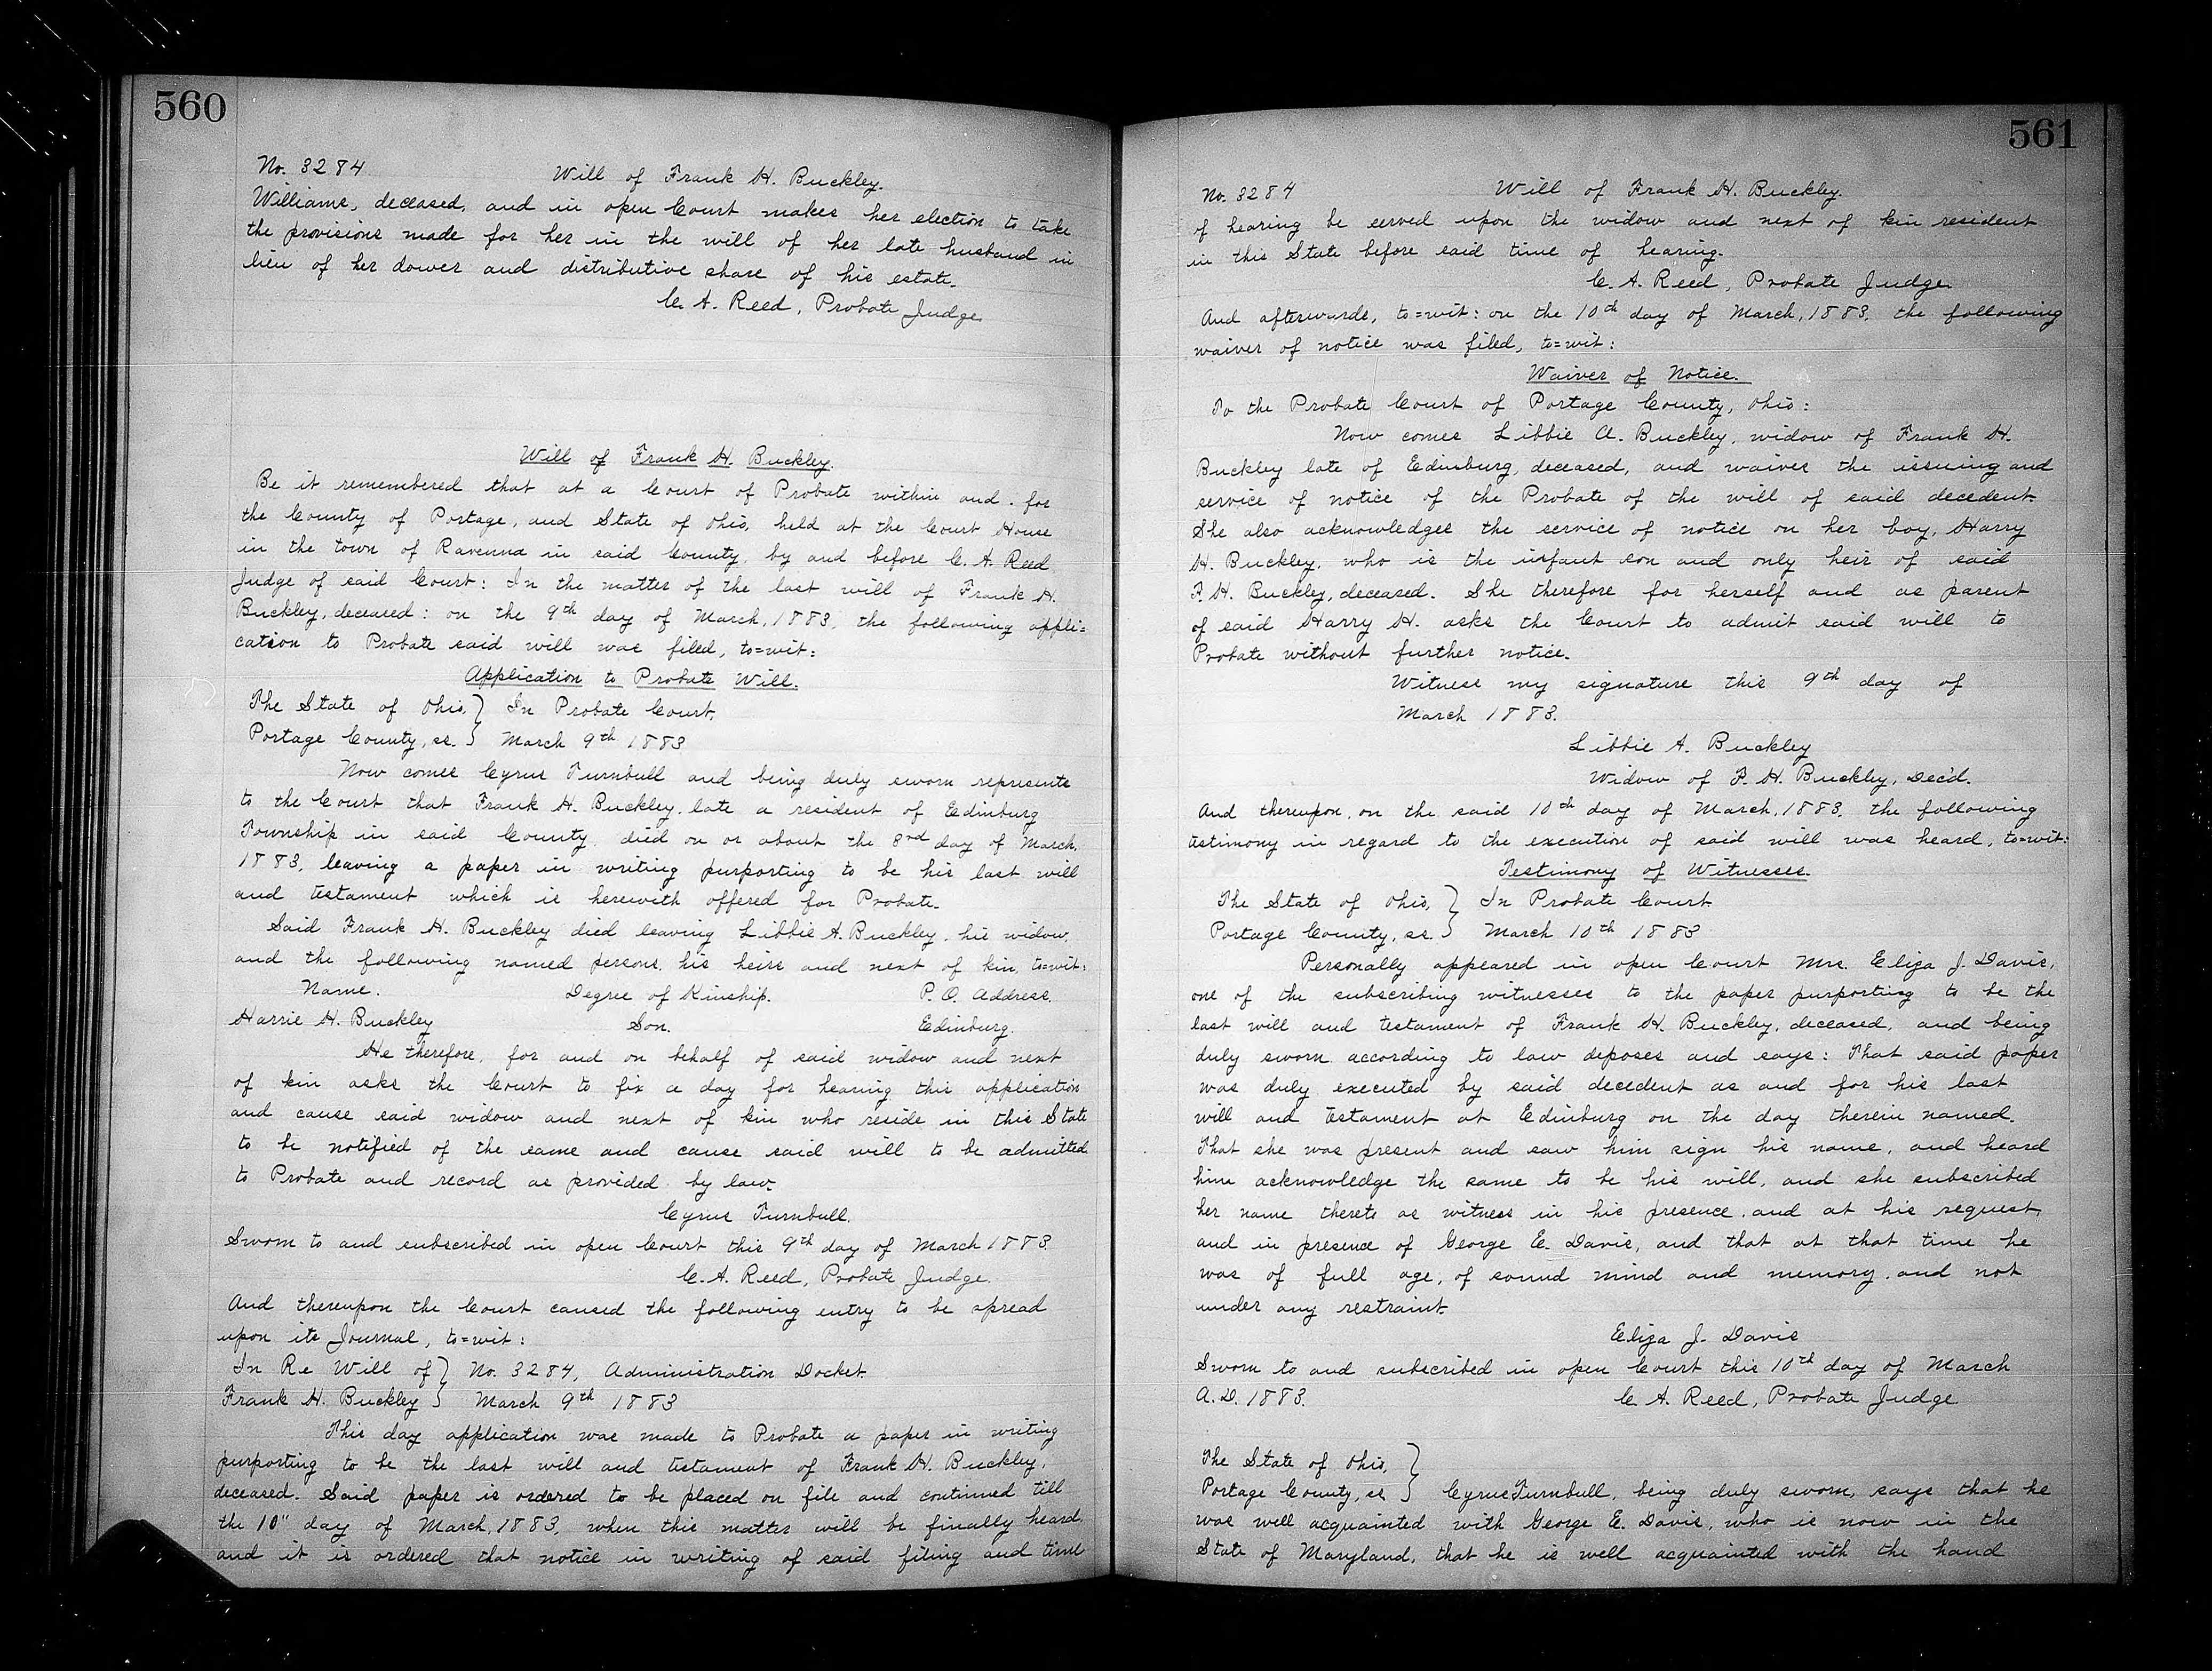 560
No. 3284 Will of Frank H. Buckley.
Williams, deceased, and in open Court makes her election to take
the provisions made for her in the will of her late husband in
lieu of her dower and distributive share of his estate.
C. A. Reed, Probate Judge.
Will of Frank H. Buckley.
Be it remembered that at a Court of Probate within and for
the County of Portage, and State of Ohio, held at the Court House
in the town of Ravenna in said County, by and before C. A. Reed
Judge of said Court: In the matter of the last will of Frank H.
Buckley, deceased: on the 9th day of March, 1883, the following appli=
cation to Probate said will was filed, to=wit:
Application to Probate Will.
The State of Ohio, } In Probate Court,
Portage County, ss. } March 9th 1883
Now comes Cyrus Turnbull and being duly sworn represents
to the Court that Frank H. Buckley, late a resident of Edinburg
Township in said County died on or about the 8rd day of March,
1883, leaving a paper in writing purporting to be his last will
and testament which is herewith offered for Probate.
Said Frank H. Buckley died leaving Libbie A. Buckley, his widow,
and the following named persons, his heirs and next of kin, to=wit:
Name. Degree of Kinship. P. O. Address.
Harrie H. Buckley Son. Edinburg.
He therefore, for and on behalf of said widow and next
of kin asks the Court to fix a day for hearing this application
and cause said widow and next of kin who reside in this State
to be notified of the same and cause said will to be admitted
to Probate and record as provided by law.
Cyrus Turnbull.
Sworn to and subscribed in open Court this 9th day of March 1883.
C. A. Reed, Probate Judge.
And thereupon the Court caused the following entry to be spread
upon its Journal, to=wit:
In Re Will of } No. 3284, Administration Docket.
Frank H. Buckley } March 9th 1883
This day application was made to Probate a paper in writing
purporting to be the last will and testament of Frank H. Buckley,
deceased. Said paper is ordered to be placed on file and continued till
the 10" day of March, 1883, when this matter will be finally heard,
and it is ordered that notice in writing of said filing and time
561
No. 3284 Will of Frank H. Buckley.
of hearing be served upon the widow and next of kin resident
in this State before said time of hearing.
C. A. Reed, Probate Judge.
And afterwards, to=wit: on the 10th day of March, 1883, the following
waiver of notice was filed, to=wit:
Waiver of Notice.
To the Probate Court of Portage County, Ohio:
Now comes Libbie A. Buckley, widow of Frank H.
Buckley late of Edinburg, deceased, and waives the issuing and
service of notice of the Probate of the will of said decedent.
She also acknowledges the service of notice on her boy, Harry
H. Buckley, who is the infant son and only heir of said
F. H. Buckley, deceased. She therefore for herself and as parent
of said Harry H. asks the Court to admit said will to
Probate without further notice.
Witness my signature this 9th day of
March 1883.
Libbie A. Buckley
Widow of F. H. Buckley, Dec'd.
And thereupon, on the said 10th day of March, 1883, the following
testimony in regard to the execution of said will was heard, to=wit:
Testimony of Witnesses.
The State of Ohio, } In Probate Court
Portage County, ss. } March 10th 1883
Personally appeared in open Court Mrs. Eliza J. Davis,
one of the subscribing witnesses to the paper purporting to be the
last will and testament of Frank H. Buckley, deceased, and being
duly sworn according to law deposes and says: That said paper
was duly executed by said decedent as and for his last
will and testament at Edinburg on the day therein named.
That she was present and saw him sign his name, and heard
him acknowledge the same to be his will, and she subscribed
her name thereto as witness in his presence, and at his request,
and in presence of George E. Davis, and that at that time he
was of full age, of sound mind and memory, and not
under any restraint.
Eliza J. Davis
Sworn to and subscribed in open Court this 10th day of March
A. D. 1883. C. A. Reed, Probate Judge
The State of Ohio, }
Portage County, ss } Cyrus Turnbull, being duly sworn, says that he
was well acquainted with George E. Davis, who is now in the
State of Maryland, that he is well acquainted with the hand